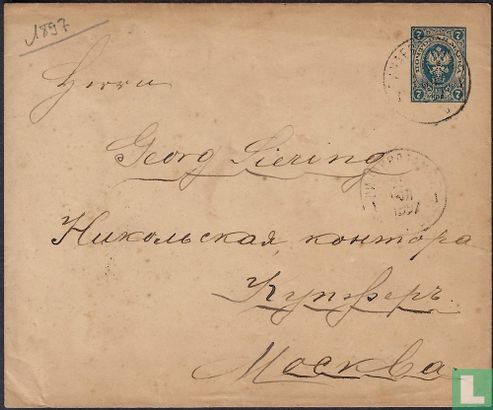 1897
7 7
ПОЧТОВАЯ МАРКА
7 7
Herrn
Georg Siering
1897
Никольская, контора
Купферъ.
Москва.
L